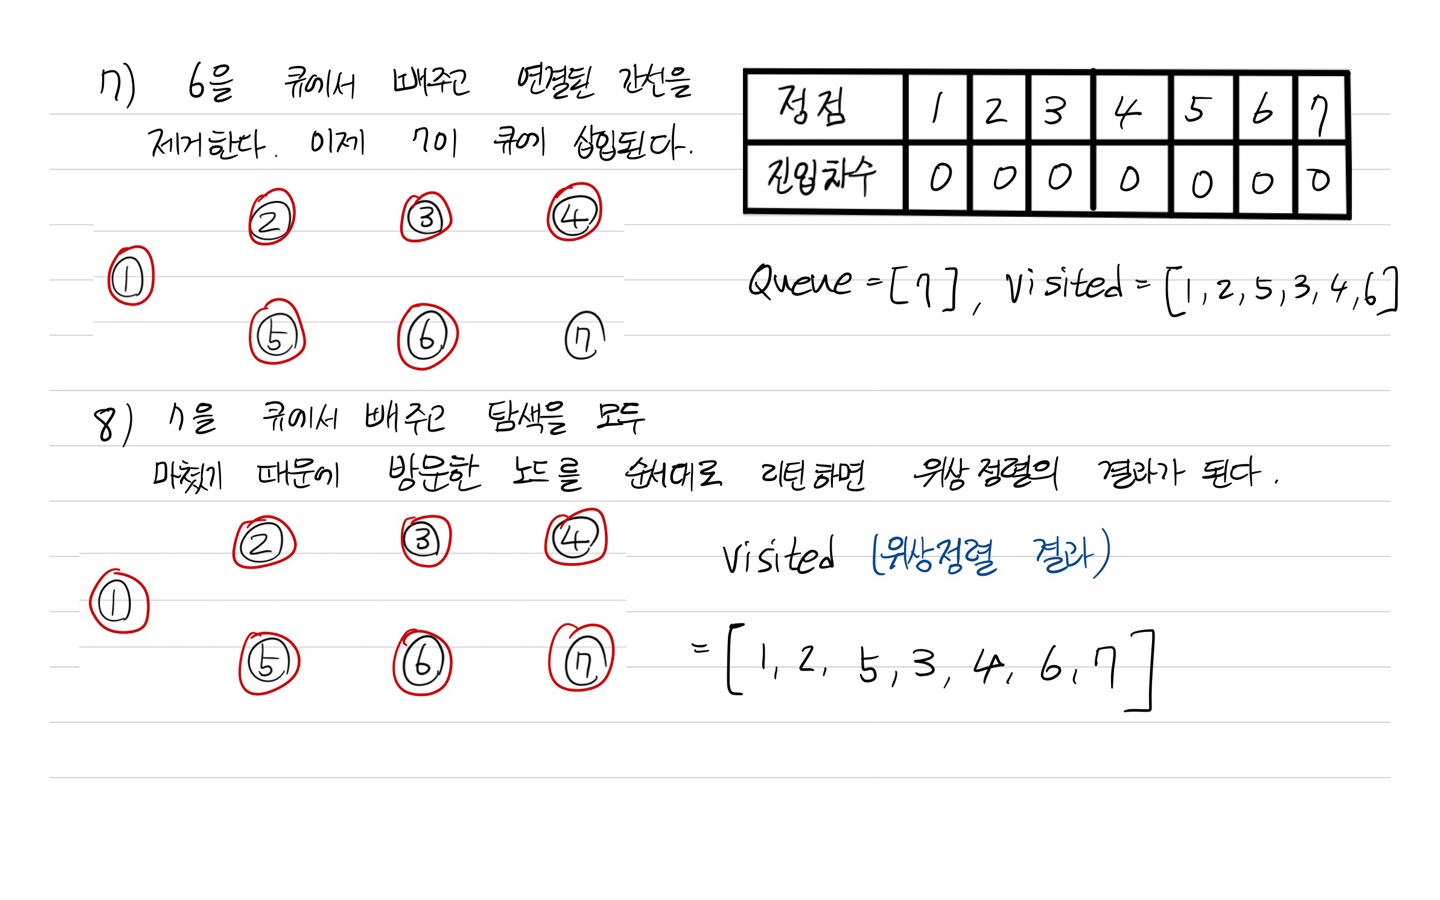 7) 6을 큐에서 빼주고 연결된 간선을
제거한다. 이제 7이 큐에 삽입된다.
정점 1 2 3 4 5 6 7
진입차수 0 0 0 0 0 0 0
2 3 4
1
5 6 7
Queue = [7], visited = [1, 2, 5, 3, 4, 6]
8) 7을 큐에서 빼주고 탐색을 모두
마쳤기 때문에 방문한 노드를 순서대로 리턴하면 위상 정렬의 결과가 된다.
2 3 4
1
5 6 7
visited (위상정렬 결과)
= [1, 2, 5, 3, 4, 6, 7]